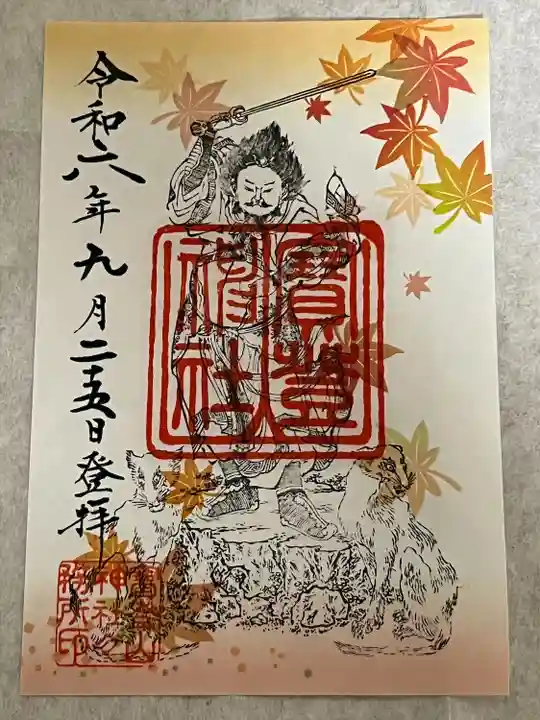 令和六年九月二十五日登拝
寶登山
神社
寶登山
神社
務所印